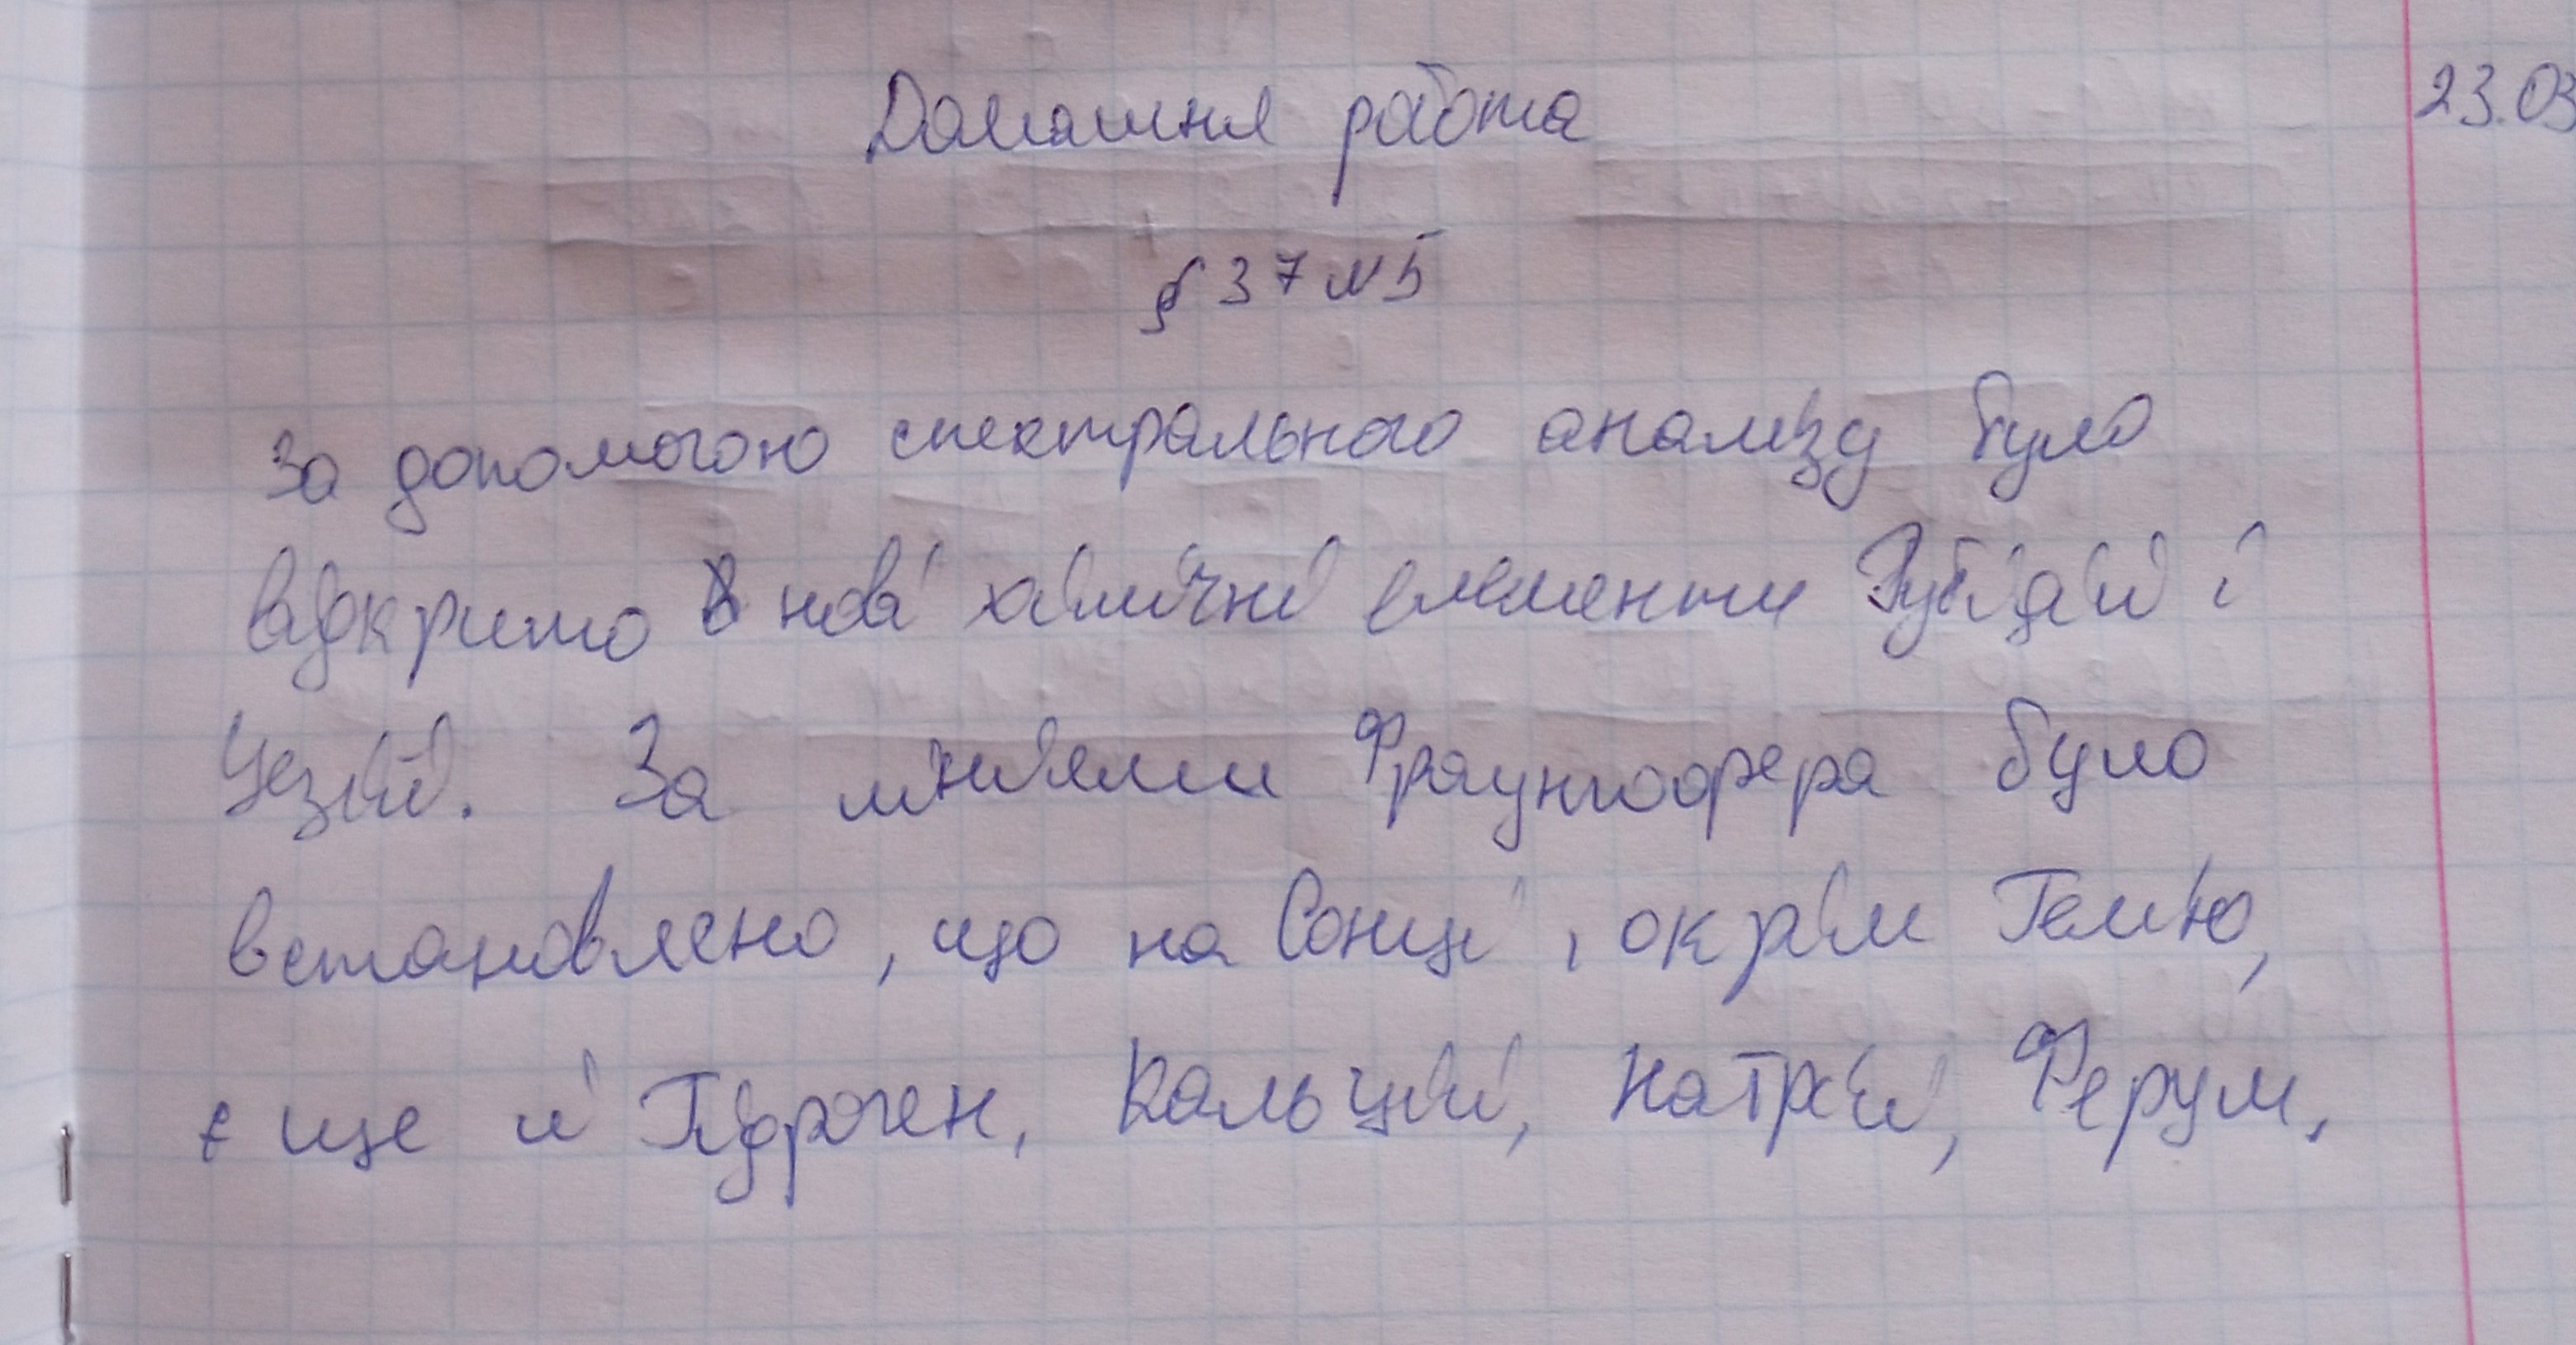 Домашня работа
23.03
§ 37 № 5
За допомогою спектрального аналізу було
відкрито в нові хімічні елементи Рубідій і
Цезій. За лініями Фраунгофера було
встановлено, що на Сонці, окрім Гелію,
є ще й Гідроген, Кальцій, Натрій, Ферум.